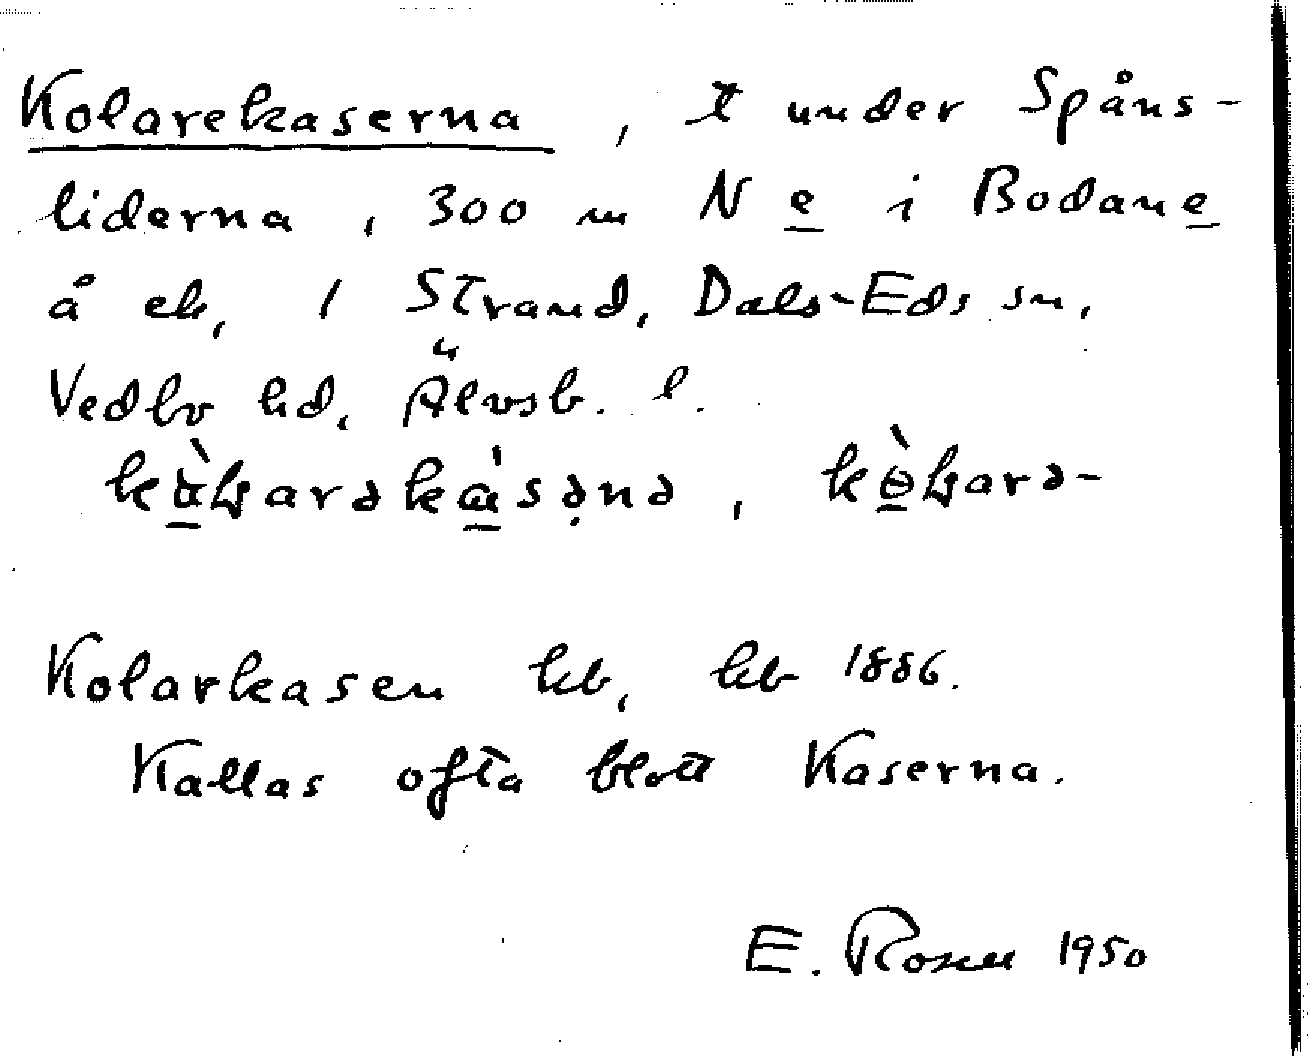 Kolarekaserna, t under Spåns-
liderna, 300 m N e i Bodane
å ek, 1 Strand, Dals-Eds sn,
Vedbo hd, Älvsb. l.
Kolarkasen kb, kb 1886.
Kallas ofta blott Kaserna.
E. Rosen 1950